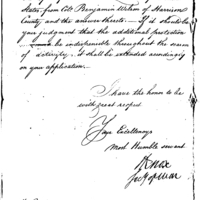 States from Colo. Benjamin Wilson of Harrison
County and the answer thereto — If it should be
your judgment that the additional protection
be indispensible throughout the season
of it shall be extended accordingly
on your application.
I have the honor to be
with great respect
Your Excellency's
Most Humble servant
H Knox
Secy of War